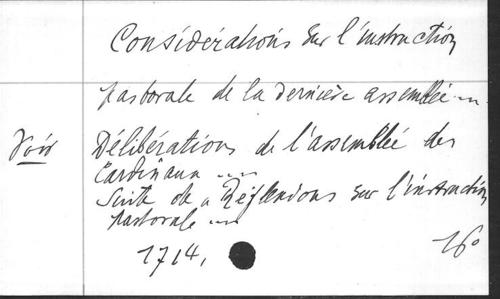 Considérations sur l'instruction
pastorale de la dernière assemblée ...
Voir Délibérations de l'assemblée des
Cardinaux ...
Suite de « Réflexions sur l'instruction
pastorale ...
1714,
16°